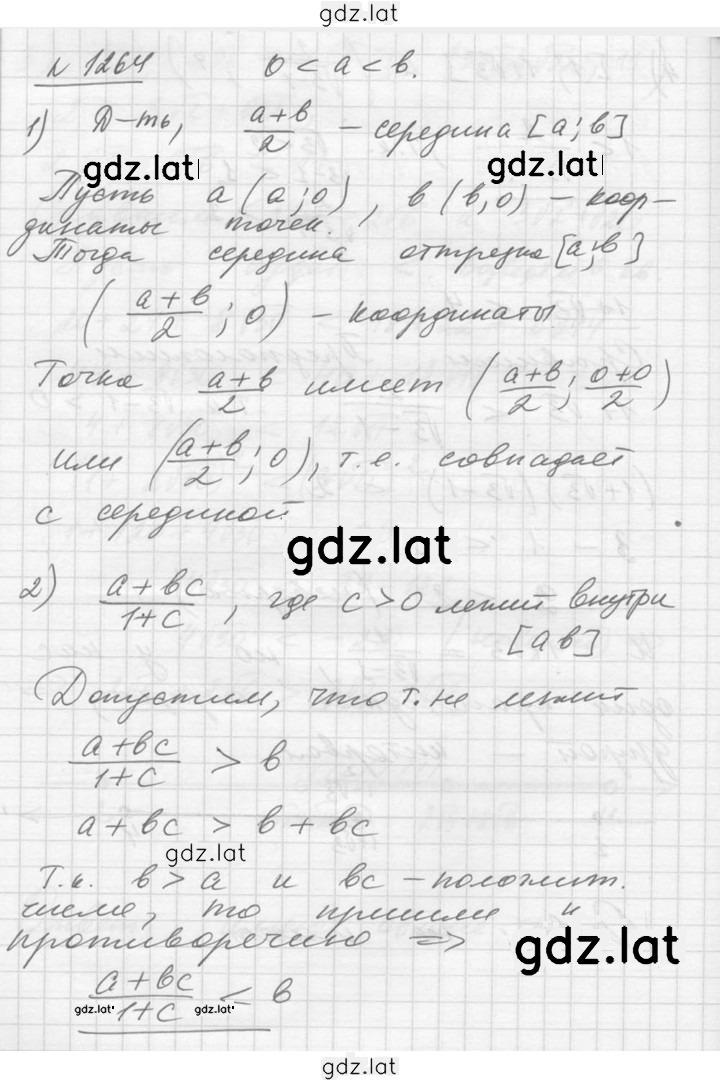 gdz.lat
N 1264 0 < a < b.
1) Д-ть, (a+b)/2 – середина [a; b]
gdz.lat gdz.lat
Пусть a (a; 0), b (b, 0) – коор-
динаты точек.
Тогда середина отрезка [a; b]
((a+b)/2; 0) – координаты
Точка (a+b)/2 имеет ((a+b)/2; (0+0)/2)
или ((a+b)/2; 0), т.е. совпадает
с серединой
gdz.lat
2) (a+bc)/(1+c), где c>0 лежит внутри
[ab]
Допустим, что т. не лежит
(a+bc)/(1+c) > b
a+bc > b+bc
gdz.lat
Т.к. b>a и bc – положит.
числа, то пришли к
противоречию =>
gdz.lat
(a+bc)/(1+c) ≤ b
gdz.lat gdz.lat
gdz.lat